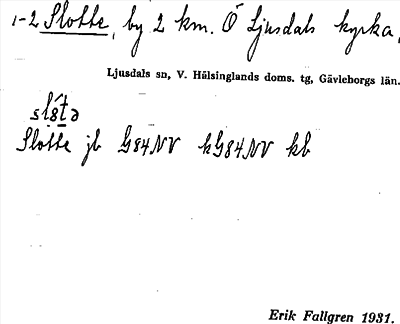 1-2 Slotte, by 2 km. Ö Ljusdals kyrka,
Ljusdals sn, V. Hälsinglands doms. tg, Gävleborgs län.
Slotte jb G84NV kG84NV kb
Erik Fallgren 1931.